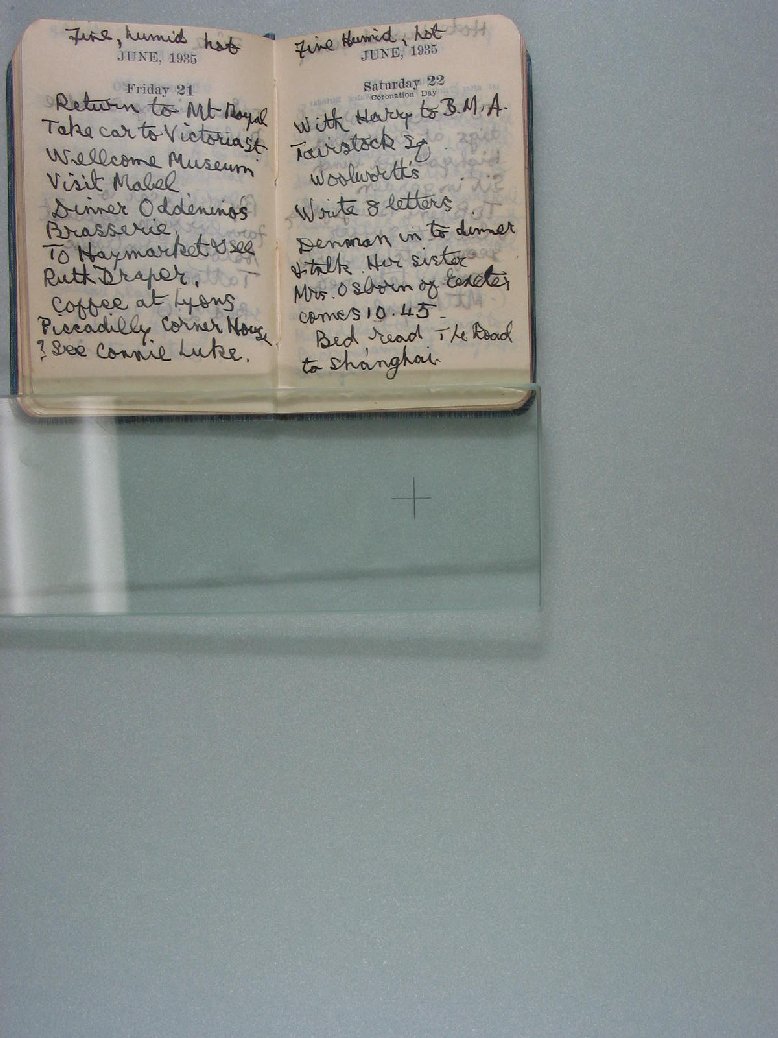 Fine, humid hot
JUNE, 1935
Friday 21
Return to Mt Royal
Take car to Victoria St
Wellcome Museum
Visit Mabel
Dinner Oddeninos
Brasserie,
To Haymarket & see
Ruth Draper.
Coffee at Lyons
Piccadilly Corner House.
? See Connie Luke.
Fine Humid, hot
JUNE, 1935
Saturday 22
Coronation Day
With Harry to B.M.A.
Tavistock Sq.
Woolworths
Write 8 letters.
Denman in to dinner
& talk. Her sister
Mrs. Osborn of Exeter
comes 10.45.
Bed read The Road
to Shanghai.